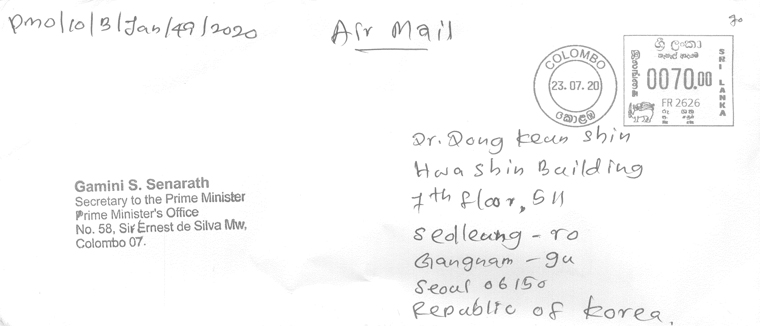 PMO/10/B/Jan/49/2020
Air Mail
70
COLOMBO
23.07.20
කොළඹ
ශ්‍රී ලංකා
SRI LANKA
0070.00
FR 2626
Gamini S. Senarath
Secretary to the Prime Minister
Prime Minister's Office
No. 58, Sir Ernest de Silva Mw,
Colombo 07.
Dr. Dong Keun Shin
Hwa Shin Building
7th floor, 511
Seolleung - ro
Gangnam - gu
Seoul 06150
Republic of Korea.